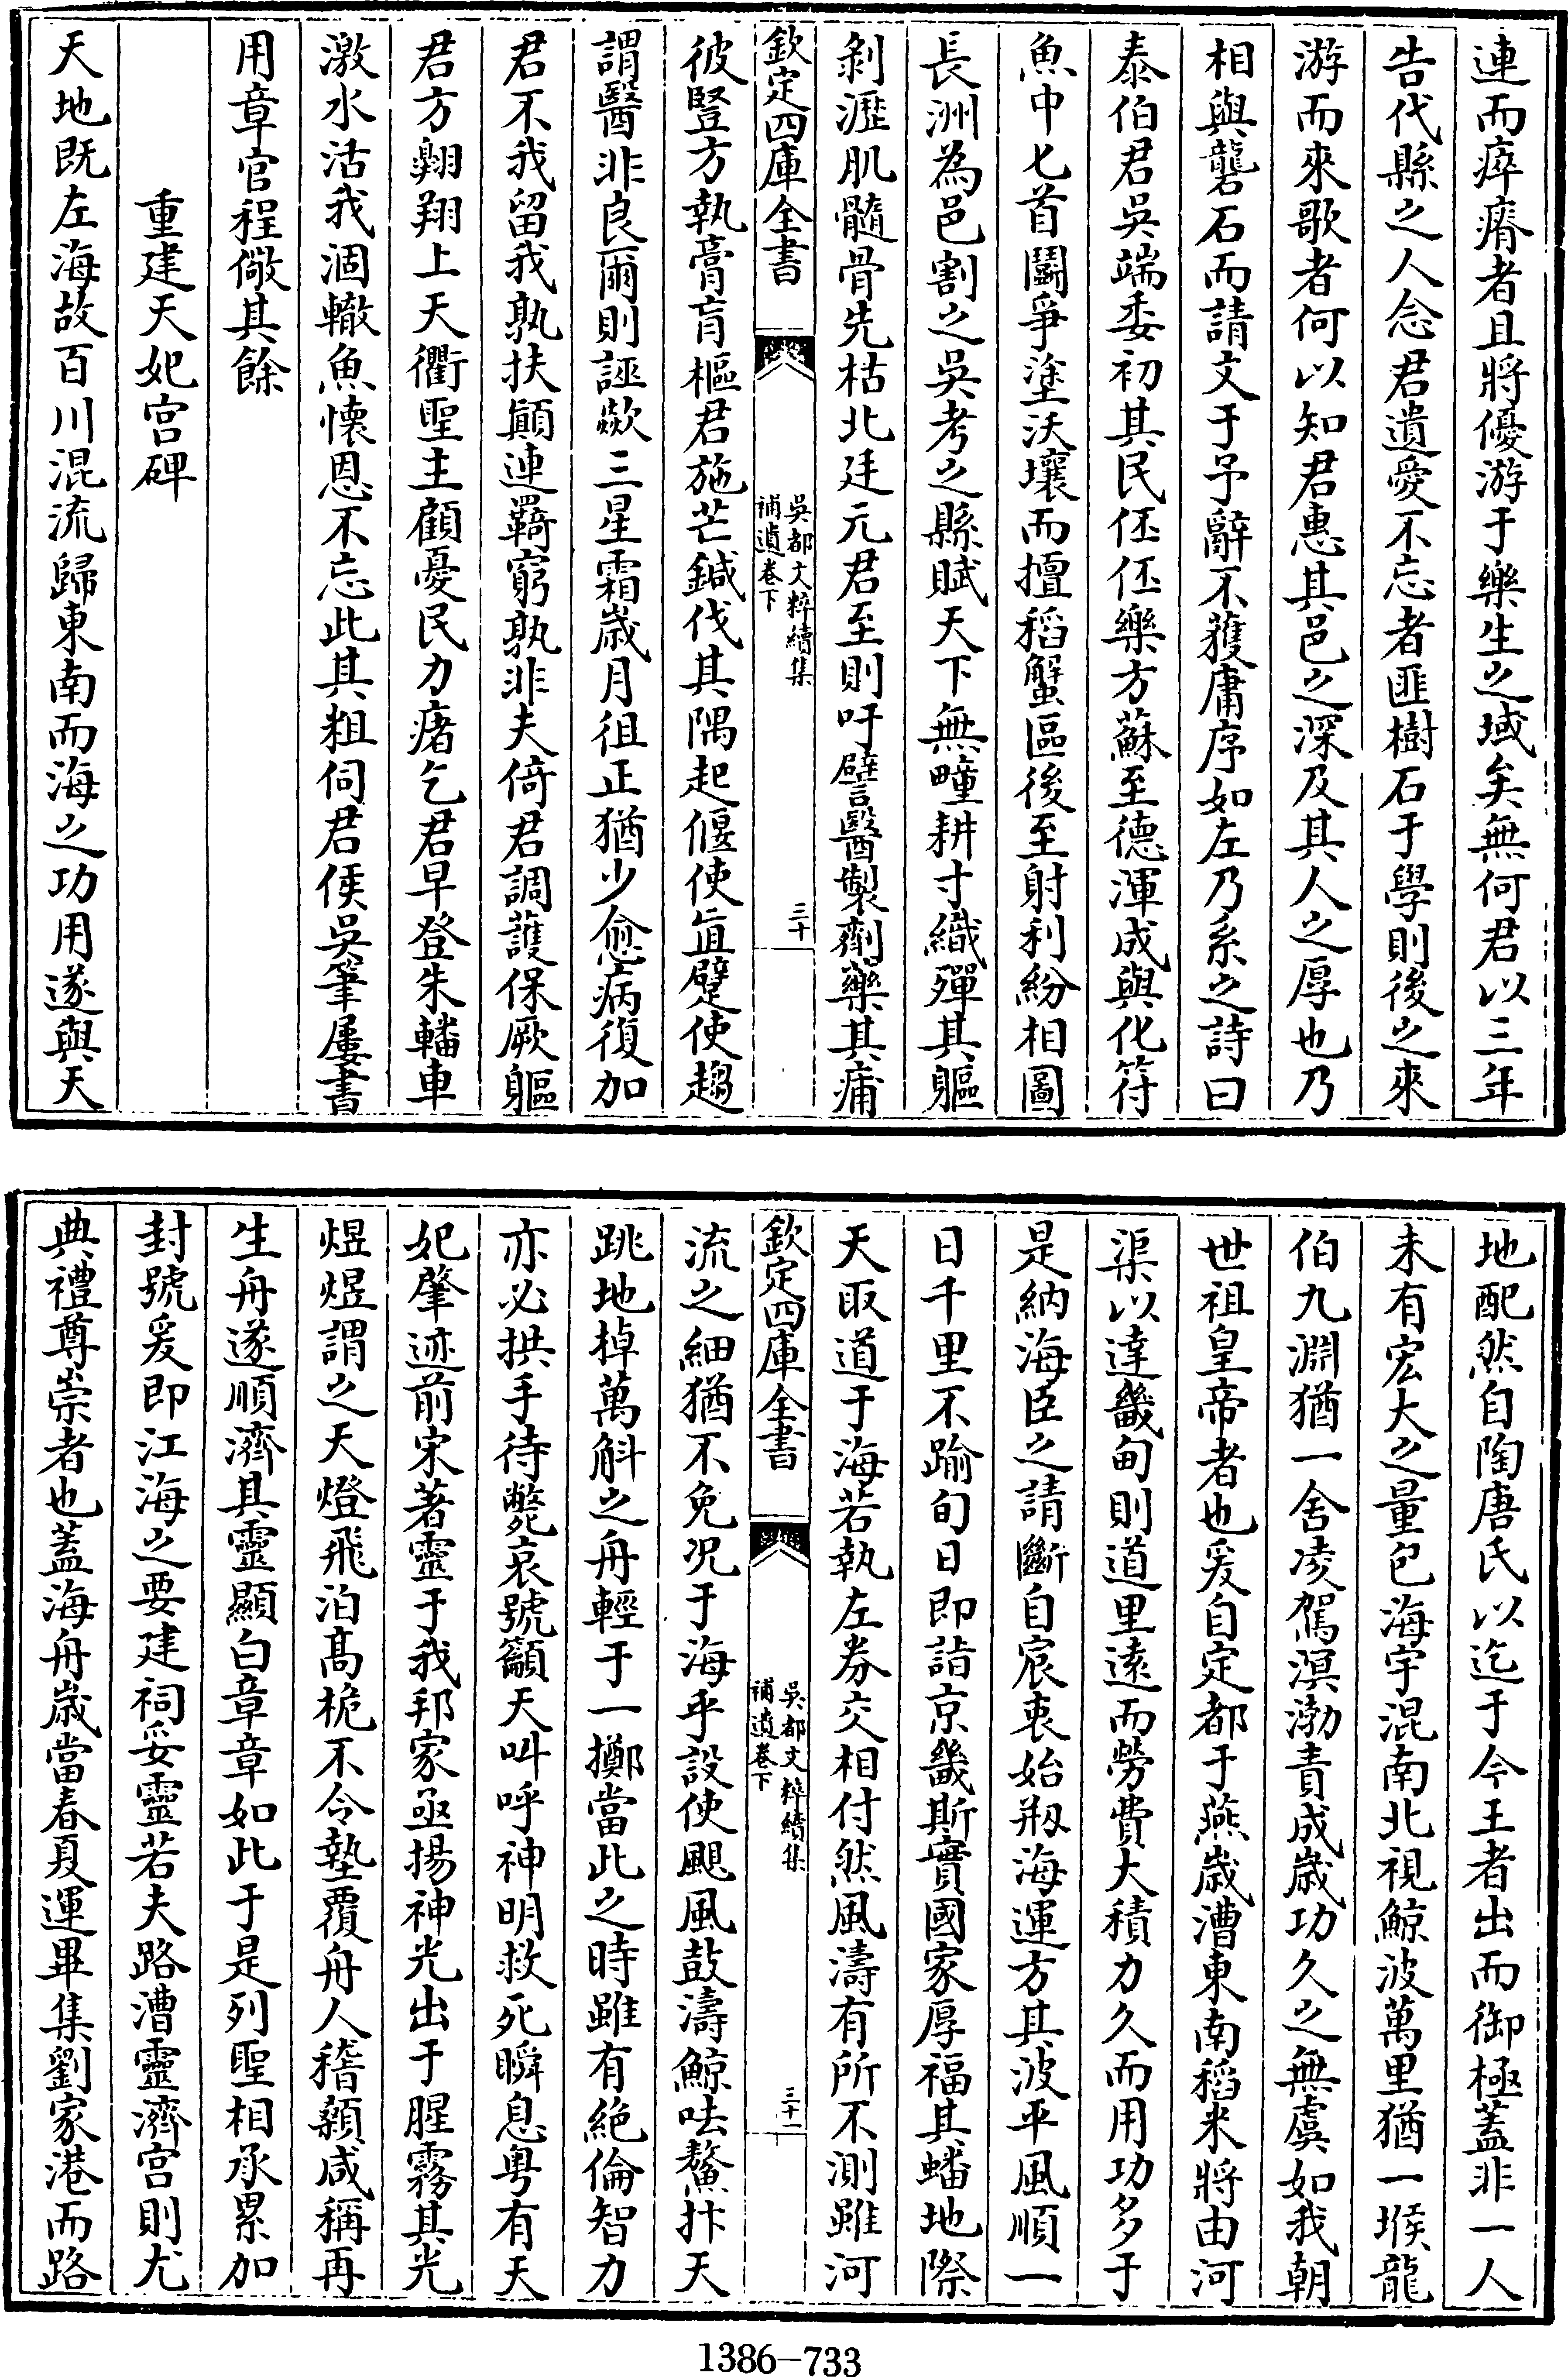 連而瘁瘠者且將優游于樂生之域矣無何君以三年
告代縣之人念君遺愛不忘者匪樹石于學則後之來
游而來歌者何以知君惠其邑之深及其人之厚也乃
相與礱石而請文于予辭不獲庸序如左乃系之詩曰
泰伯君吳端委初其民伾伾樂方蘇至德渾成與化符
魚中匕首鬭爭塗沃壤而擅稻蟹區後至射利紛相圖
長洲為邑割之吳考之縣賦天下無疃耕寸織殫其軀
剝瀝肌髓骨先枯北廷元君至則吁譬醫製劑藥其痡
欽定四庫全書
吳都文粹續集
補遺卷下
三十
彼豎方執膏肓樞君施芒鍼伐其隅起偃使直躄使趨
謂醫非良爾則誣歘三星霜歲月徂正猶少愈病復加
君不我留我孰扶顛連羇窮孰非夫倚君調護保厥軀
君方翱翔上天衢聖主顧憂民力瘏乞君早登朱轓車
激水活我涸轍魚懷恩不忘此其粗伺君侯吳筆屢書
用章官程儆其餘
重建天妃宫碑
天地既左海故百川混流歸東南而海之功用遂與天
地配然自陶唐氏以迄于今王者出而御極蓋非一人
未有宏大之量包海宇混南北視鯨波萬里猶一堠龍
伯九淵猶一舍凌駕溟渤責成歲功久之無虞如我朝
世祖皇帝者也爰自定都于燕歲漕東南稻米將由河
渠以達畿甸則道里逺而勞費大積力久而用功多于
是納海臣之請斷自宸衷始剏海運方其波平風順一
日千里不踰旬日即詣京畿斯實國家厚福其蟠地際
天取道于海若執左券交相付然風濤有所不測雖河
欽定四庫全書
吳都文粹續集
補遺卷下
三十一
流之細猶不免况于海乎設使颶風鼓濤鯨呿鰲抃天
跳地掉萬斛之舟輕于一擲當此之時雖有絶倫智力
亦必拱手待斃哀號籲天叫呼神明救死瞬息粤有天
妃肇迹前宋著靈于我邦家亟揚神光出于腥霧其光
煜煜謂之天燈飛泊髙桅不令墊覆舟人稽顙咸稱再
生舟遂順濟其靈顯白章章如此于是列聖相承累加
封號爰即江海之要建祠妥靈若夫路漕靈濟宫則尤
典禮尊崇者也蓋海舟歲當春夏運畢集劉家港而路
1386-733